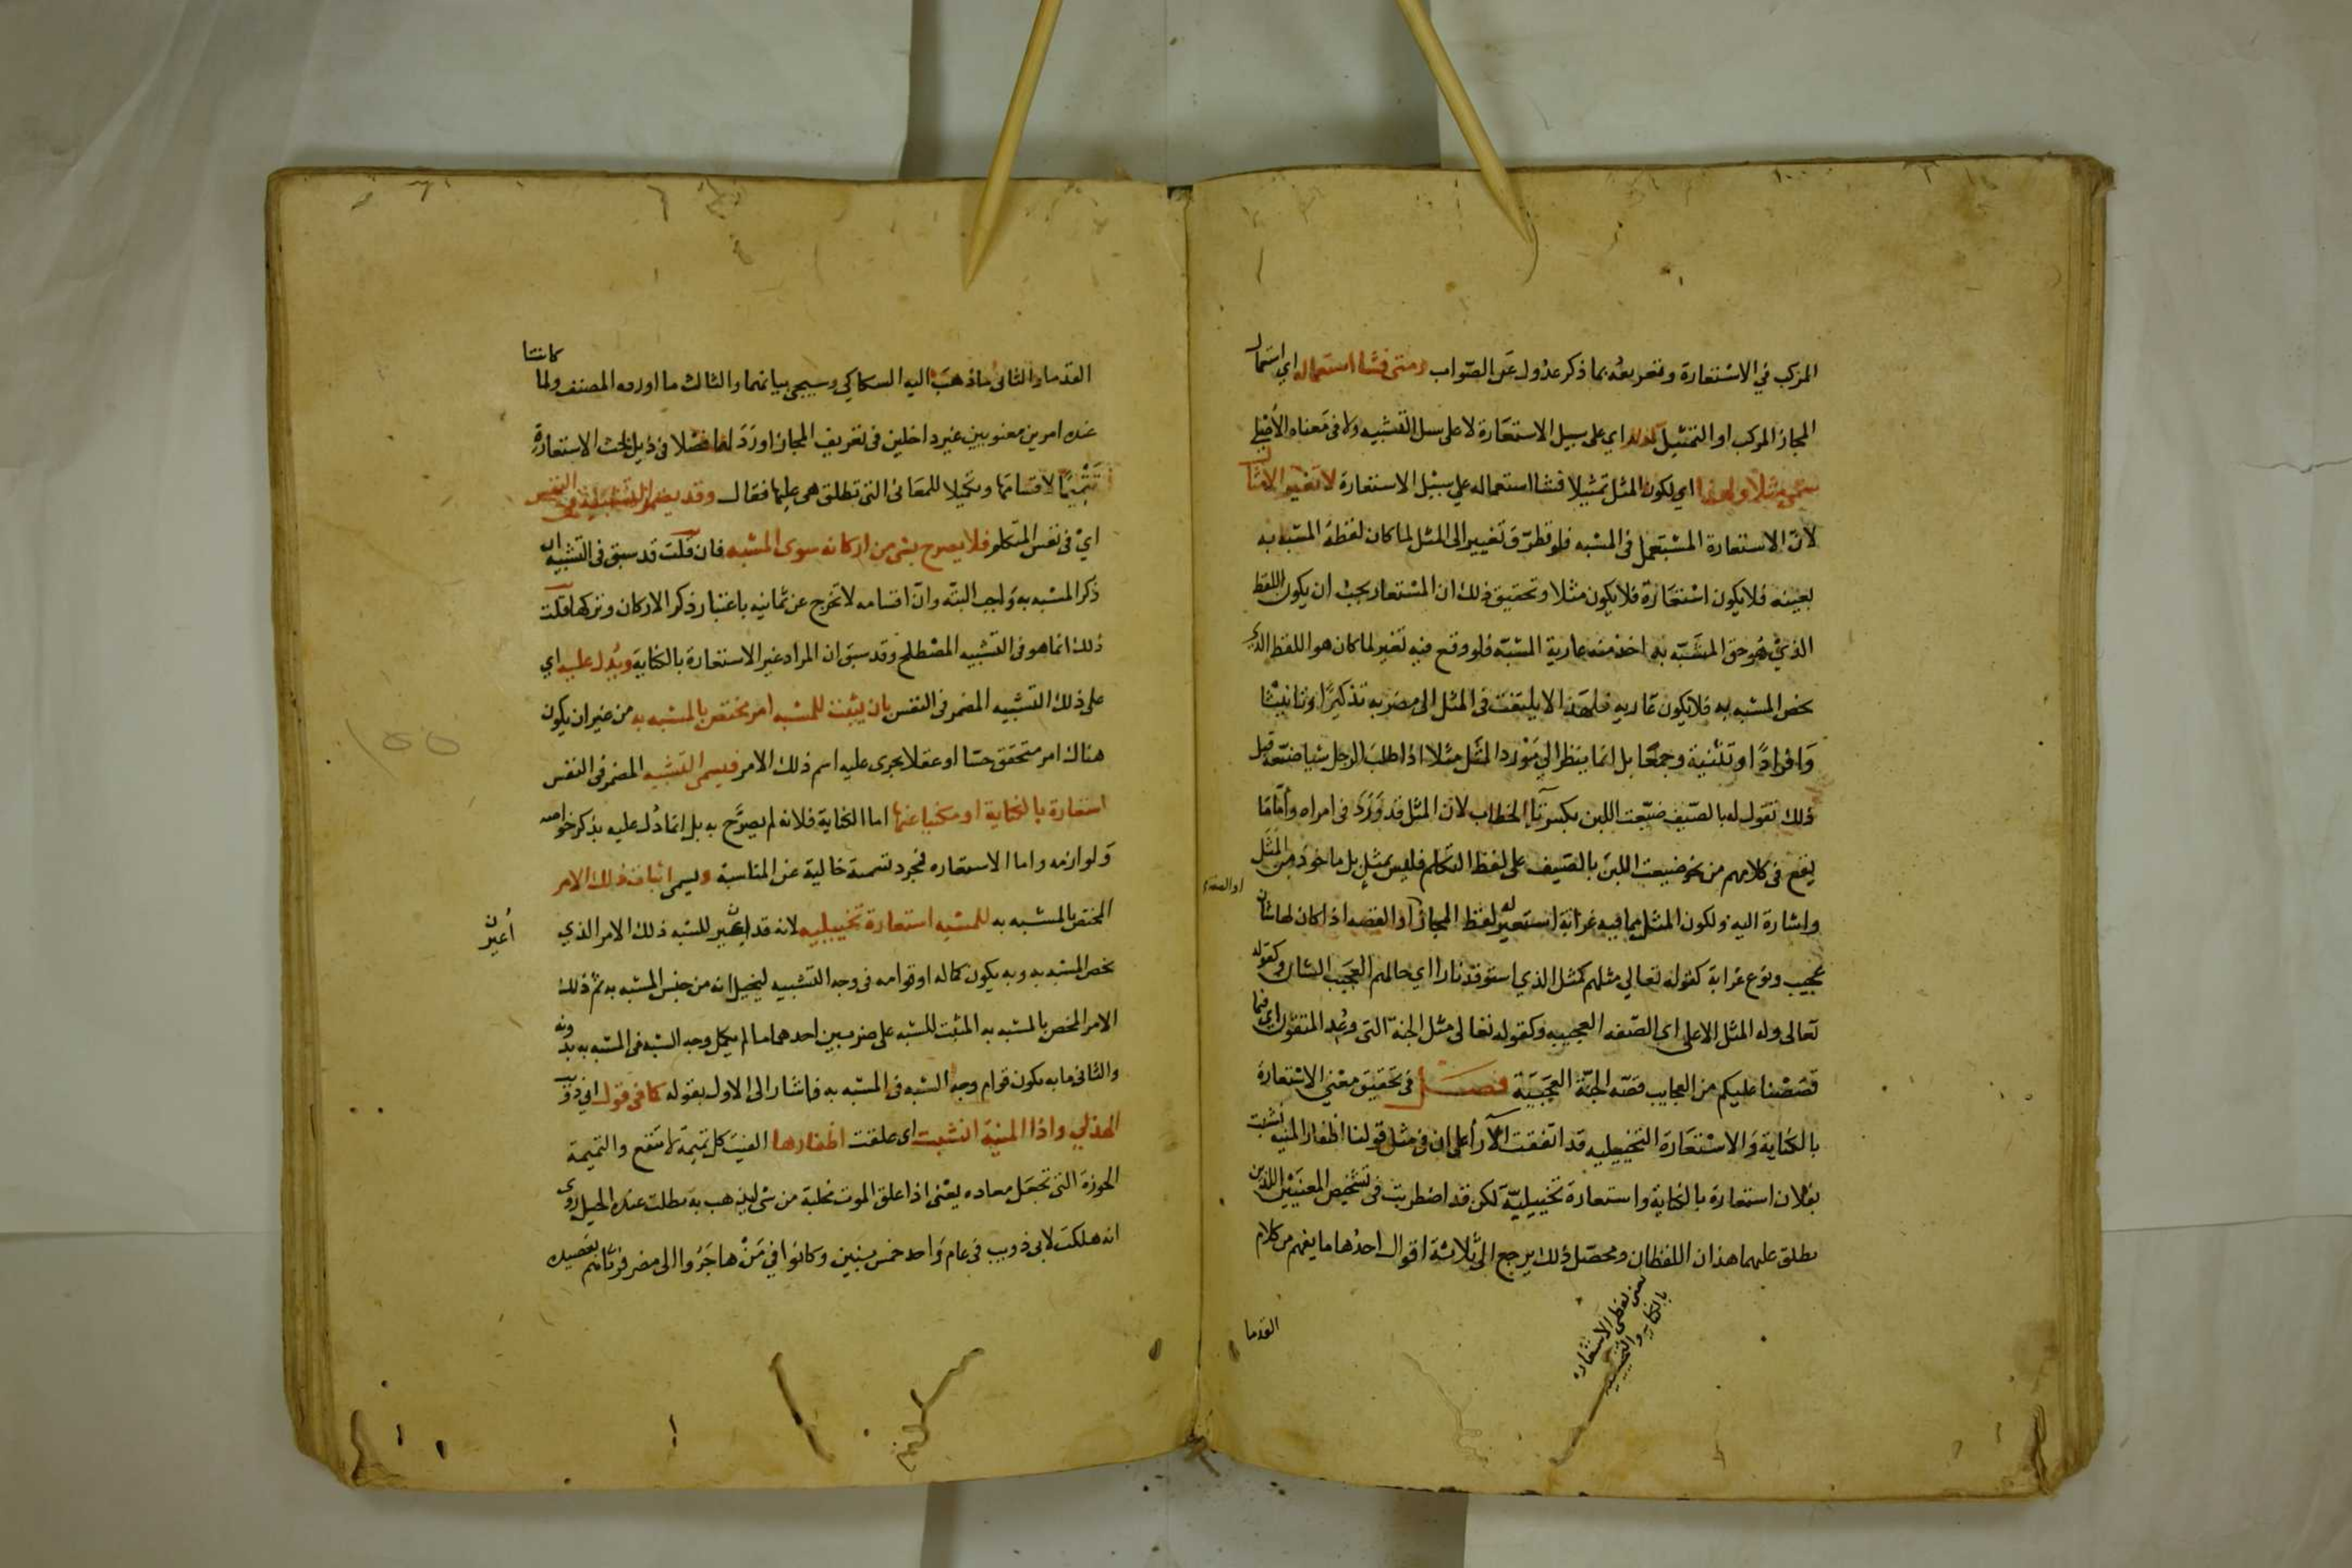 المركب في الاستعارة وتعريفه بما ذكر عدول عن الصواب ومتى فشا استعماله اي استعمال
المجاز المركب او التمثيل كذلك اي على سبيل الاستعارة لا على سبيل التشبيه ولا في معناه الأصلي
سمي مثلا ولهذا اي لكون المثل تمثيلا فشا استعماله علي سبيل الاستعارة لا تغير الامثال
لان الاستعارة المستعمل في المشبه فلو تطرق تغيير الى المثل لما كان لفظه المشبه به
بعينه فلا يكون استعارة فلا يكون مثلا وتحقيق ذلك ان المستعار يجب ان يكون اللفظ
الذي هو حق المشبه به اخذ منه عارية للمشبه فلو وقع فيه تغير لما كان هو اللفظ الذي
يخص المشبه به فلا يكون عاريه فلهذا لا يلتفت في المثل الى مضربه تذكيرا وتانيثا
وافرادا وتثنية وجمعا بل انما ينظر الي مورد المثل مثلا اذا طلب الرجل شيا ضيعه قبل
ذلك تقول له بالصيف ضيعت اللبن بكسر تا الخطاب لان المثل قد ورد في امراه واما ما
يقع في كلامهم من نحو ضيعت اللبن بالصيف على لفظ التكلم فليس بمثل بل ماخوذ من المثل
واشارة اليه ولكون المثل مما فيه غرابة استعير له لفظ المجاز او القصه اذا كان لها شان
او الصفه
عجيب ونوع غرابة كقوله تعالي مثلهم كمثل الذي استوقد نارا اي حالهم العجيب الشان وكقوله
تعالى وله المثل الاعلى اي الصفه العجيبه وكقوله تعالى مثل الجنة التى وعد المتقون اي فيما
قصصنا عليكم من العجايب قصه الجنة العجيبة فصل في تحقيق معنى الاستعارة
بالكناية والاستعارة التخييليه قد اتفقت الآرا على ان في مثل قولنا اظفار المنيه نشبت
بفلان استعارة بالكناية واستعارة تخييلية لكن قد اضطربت في تشخيص المعنيين اللذين
يطلق عليهما هذان اللفظان ومحصل ذلك يرجع الى ثلاثة اقوال احدها ما يفهم من كلام
يعنى لفظى الاستعاره
بالكنايه والتخييليه
القدما
القدما والثانى ما ذهب اليه السكاكي وسيجي بيانهما والثالث ما اورده المصنف ولما كانتا
عنده امرين معنويين غير داخلين فى تعريف المجاز اورد لهما فصلا فى ذيل بحث الاستعارة
تتميما لاقسامها وتكميلا للمعانى التى تطلق هي عليها فقال وقد يضمر التشبيه في النفس
اي فى نفس المتكلم فلا يصرح بشى من اركانه سوى المشبه فان قلت قد سبق فى التشبيه ان
ذكر المشبه به واجب البته وان اقسامه لا تخرج عن ثمانيه باعتبار ذكر الاركان وتركها قلت
ذلك انما هو فى التشبيه المصطلح وقد سبق ان المراد غير الاستعارة بالكناية ويدل عليه اي
على ذلك التشبيه المضمر فى النفس بان يثبت للمشبه امر مختص بالمشبه به من غير ان يكون
هناك امر متحقق حسا او عقلا يجرى عليه اسم ذلك الامر فيسمى التشبيه المضمر في النفس
استعارة بالكناية او مكنيا عنها اما الكناية فلانه لم يصرح به بل انما دل عليه بذكر خواصه
ولوازمه واما الاستعاره فمجرد تسمية خالية عن المناسبة ويسمى اثبات ذلك الامر
المختص بالمشبه به للمشبه استعارة تخييليه لانه قد اعير للمشبه ذلك الامر الذي
أعير
يخص المشبه به وبه يكون كماله او قوامه فى وجه التشبيه ليخيل انه من جنس المشبه به ثم ذلك
الامر المختص بالمشبه به المثبت للمشبه على ضربين احدهما ما لم يكمل وجه الشبه فى المشبه به بدونه
والثانى ما به يكون قوام وجه الشبه فى المشبه به فاشار الى الاول بقوله كما في قول ابي ذويب
الهذلي واذا المنية انشبت اى علقت اظفارها الفيت كل تميمة لا تنفع والتميمة
الخرزة التى تجعل معاده يعنى اذا علق الموت مخلبه من شى ليذهب به بطلت عنده الحيل روي
انه هلكت لابى ذويب في عام واحد خمس بنين وكانوا في من هاجروا الى مصر فرثاهم بقصيده